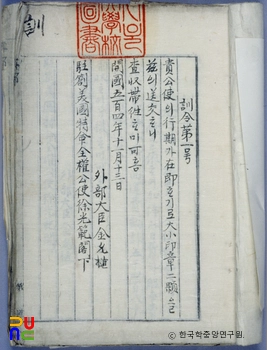 서울大學校圖書
訓令第一号
貴公使의行期가在即ᄒᆞ기로大小印章二顆을
玆의送交ᄒᆞ니
査收帶徃ᄒᆞ미可홈
開國五百四年十一月十三日
外部大臣金允植
駐劄美國特命全權公使徐光範閣下
訓
ⓒ 한국학중앙연구원